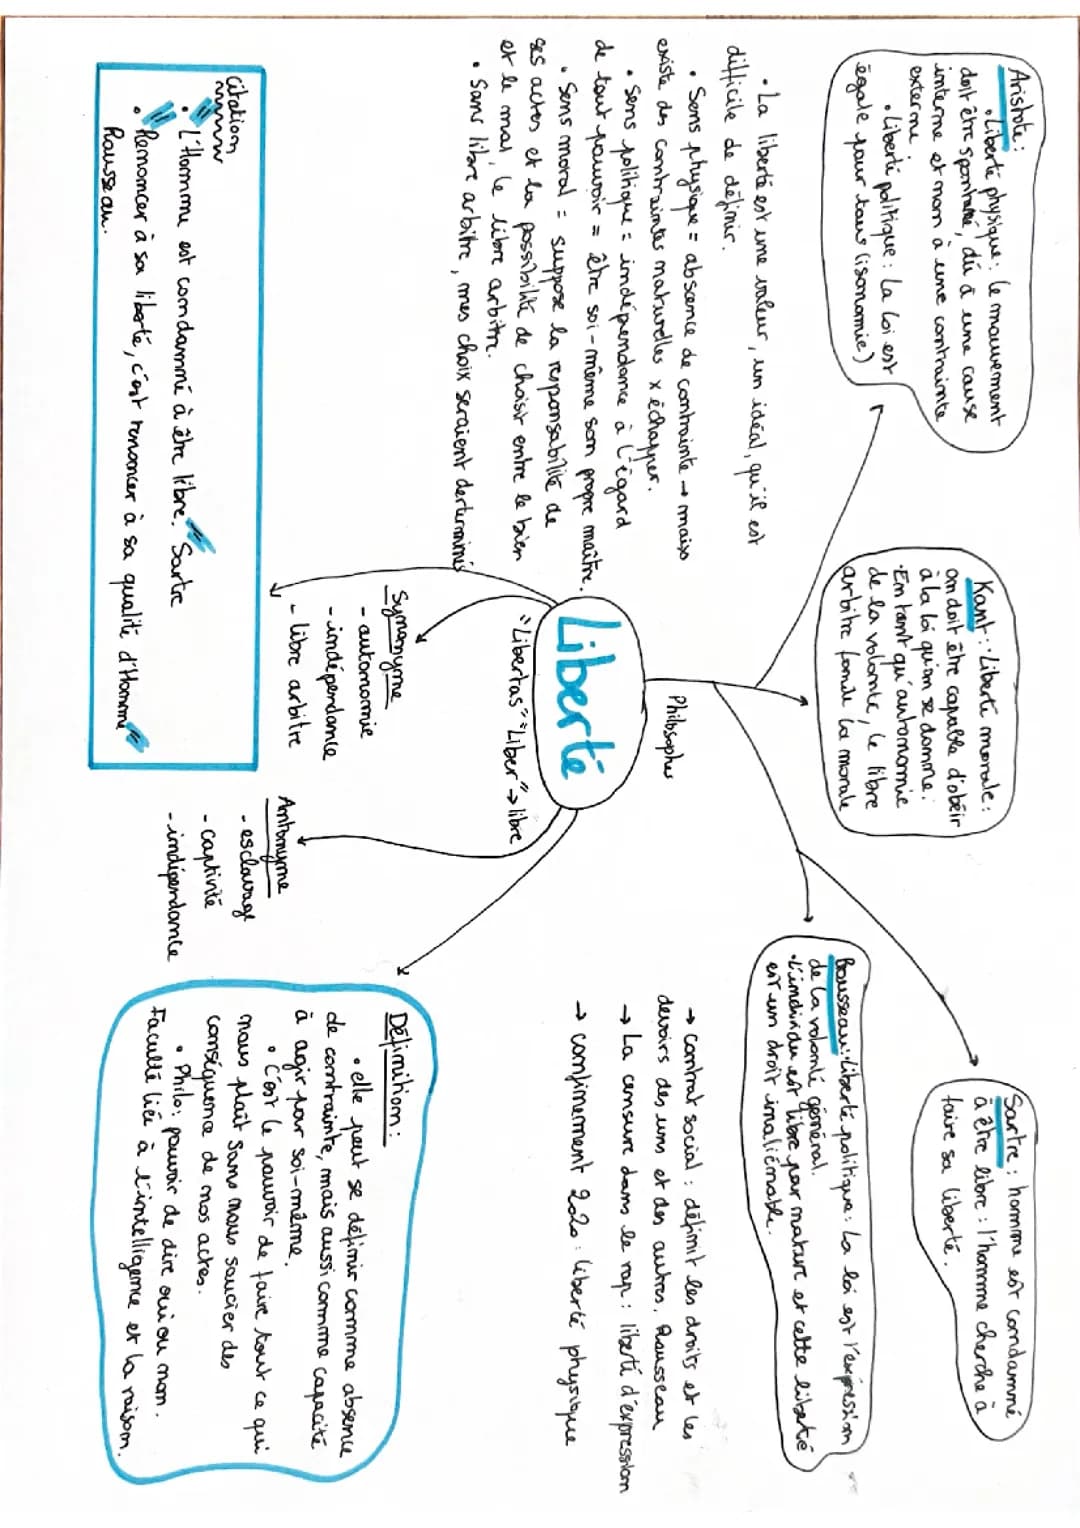 Aristote :
• Liberté physique : le mouvement
doit être spontané, dû à une cause
interne et non à une contrainte
externe.
• Liberté politique : La loi est
égale pour tous (isonomie)
Kant : • Liberté morale :
on doit être capable d'obéir
à la loi qu'on se donne.
• En tant qu'autonomie
de la volonté, le libre
arbitre fonde la morale
Sartre : homme est condamné
à être libre : l'homme cherche à
faire sa liberté.
Rousseau : • Liberté politique : La loi est l'expression
de la volonté général.
• L'individu est libre par nature et cette liberté
est un droit inaliénable.
• La liberté est une valeur, un idéal, qu'il est
difficile de définir.
• Sens physique = absence de contrainte → mais
existe des contraintes naturelles x échapper.
• Sens politique = indépendance à l'égard
de tout pouvoir = être soi-même son propre maître.
• Sens moral = suppose la responsabilité de
ses actes et la possibilité de choisir entre le bien
et le mal, le libre arbitre.
• Sans libre arbitre, mes choix seraient derterminés
Philosophes
Liberté
"Libertas" "Liber" → libre
→ contrat social : définit les droits et les
devoirs des uns et des autres. Rousseau
→ La censure dans le rap : liberté d'expression
→ confinement 2020 : liberté physique
Synonyme
- autonomie
- indépendance
- libre arbitre
Antonyme
- esclavage
- captivité
- indépendance
Définition :
• elle peut se définir comme absence
de contrainte, mais aussi comme capacité
à agir par soi-même.
• C'est le pouvoir de faire tout ce qui
nous plaît sans nous soucier des
conséquence de nos actes.
• Philo : pouvoir de dire oui ou non.
Faculté liée à l'intelligence et la raison.
Citation
• " L'Homme est condamné à être libre. " Sartre
• " Renoncer à sa liberté, c'est renoncer à sa qualité d'Homme "
Rousseau.